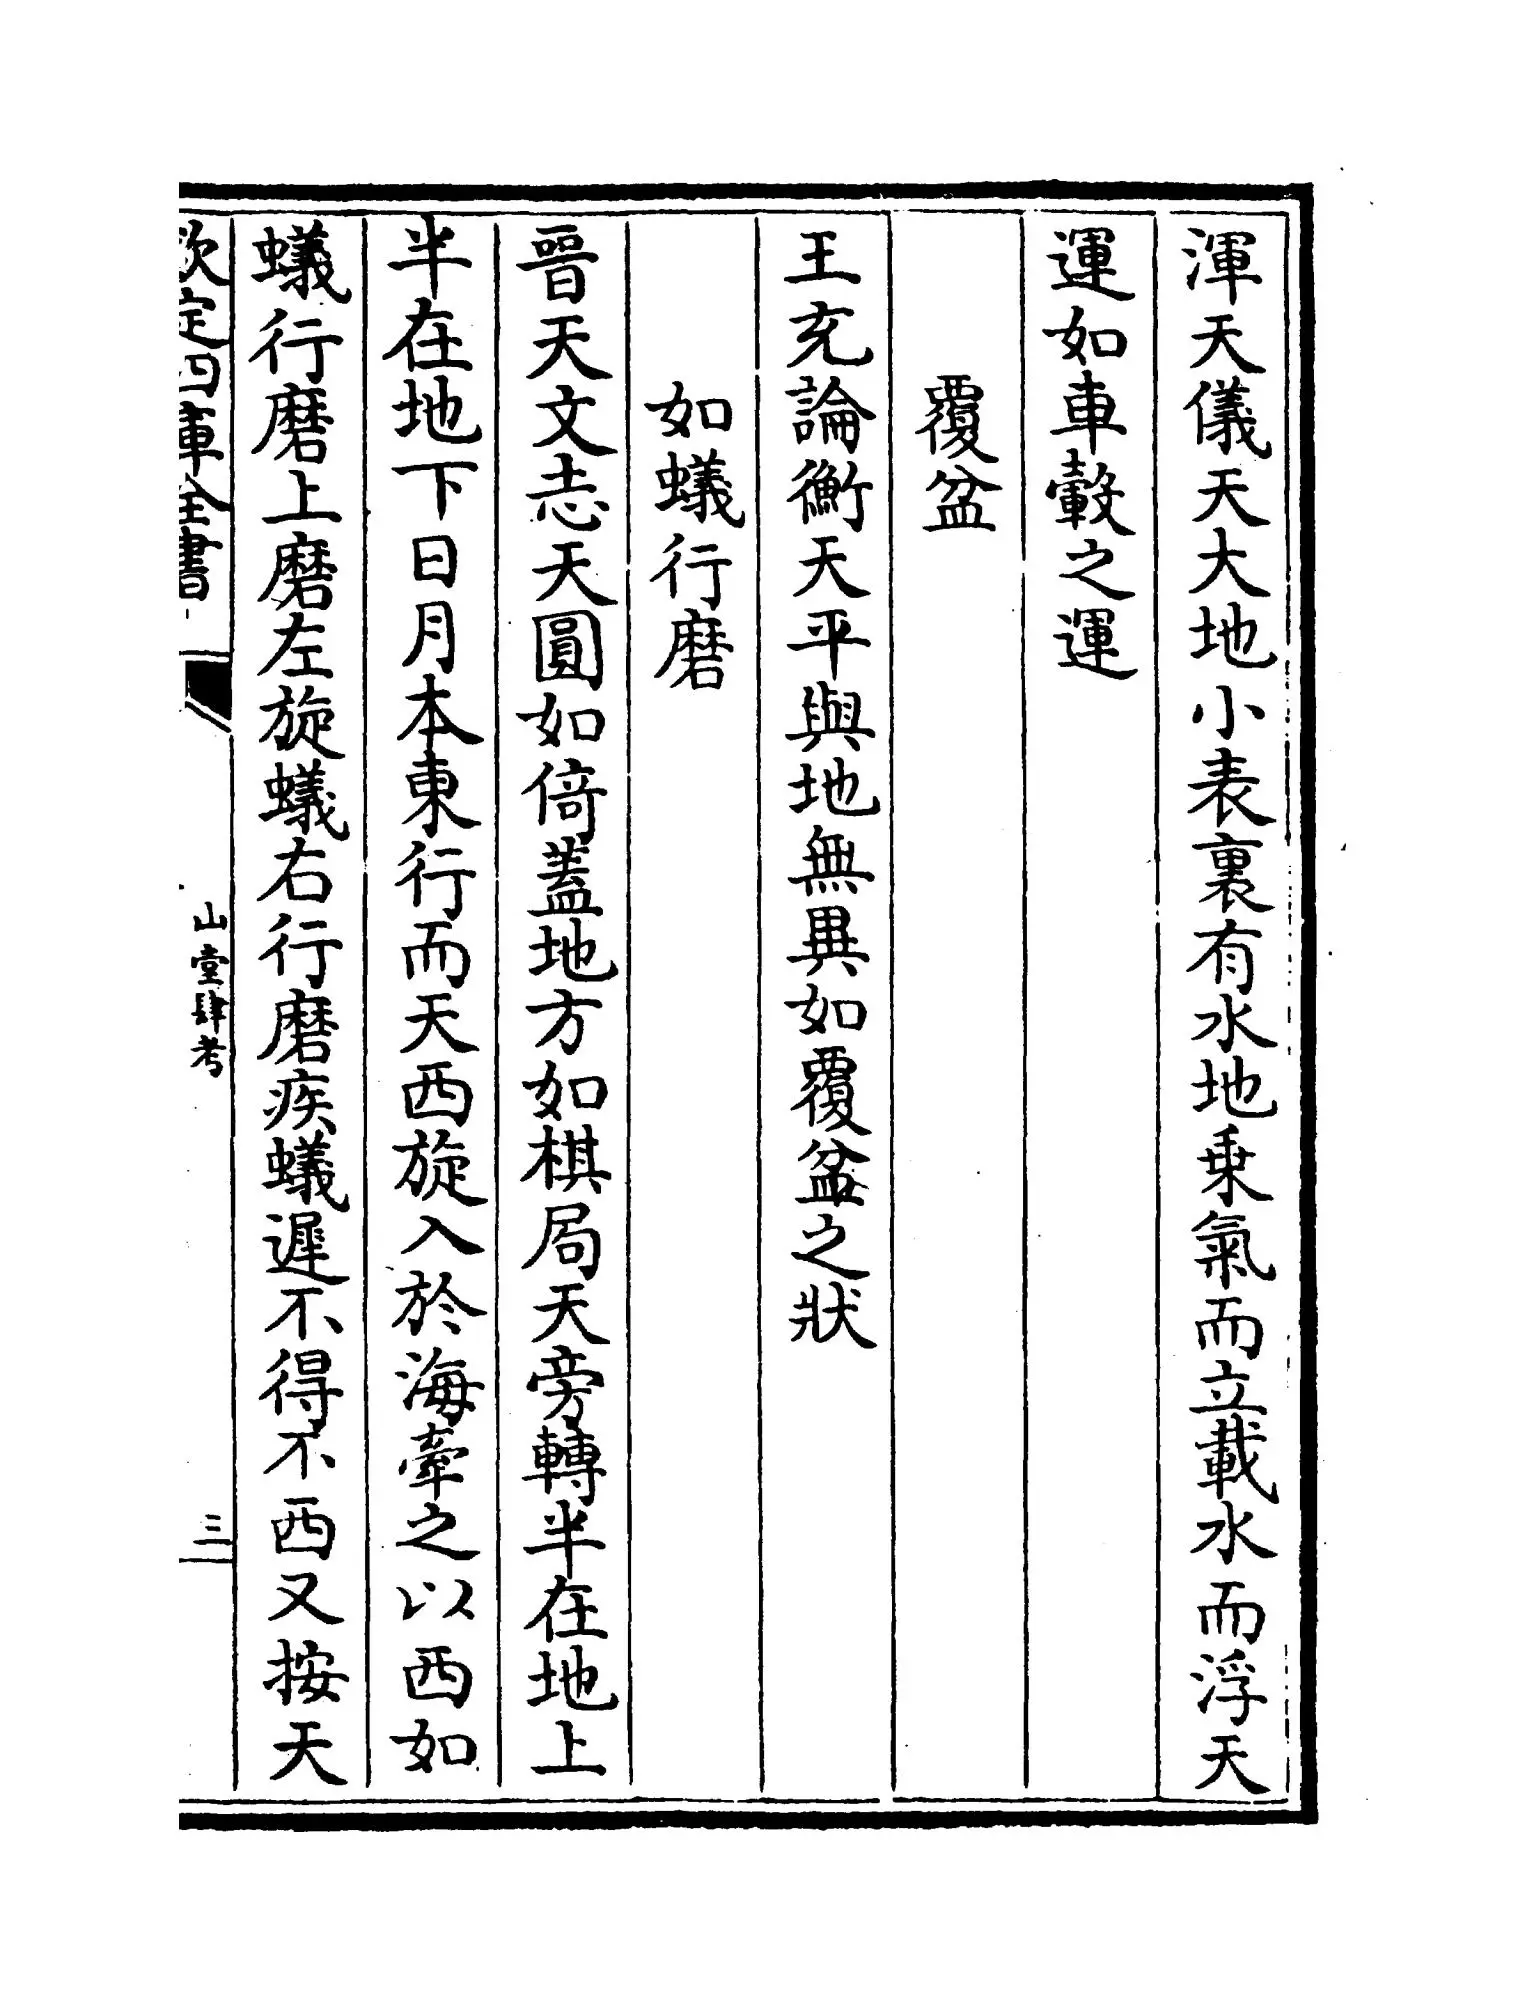 渾天儀天大地小表裏有水地乗氣而立載水而浮天
運如車轂之運
覆盆
王充論衡天平與地無異如覆盆之狀
如蟻行磨
晉天文志天圓如倚蓋地方如棋局天旁轉半在地上
半在地下日月本東行而天西旋入於海牽之以西如
蟻行磨上磨左旋蟻右行磨疾蟻遲不得不西又按天
欽定四庫全書
山堂肆考
三